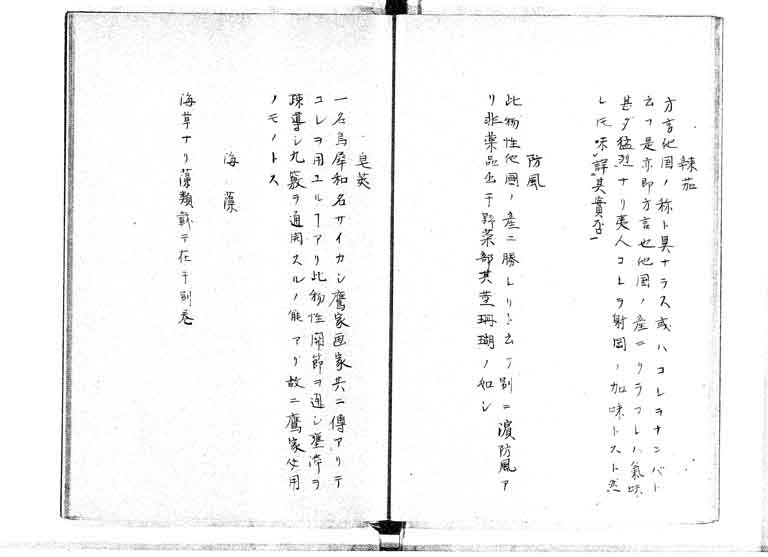 辣茄
方言他国ノ称ト異ナラス或ハコレヲナンバト
云フ是亦即方言也他国ノ産ニクラフレハ氣味
甚ダ猛烈ナリ夷人コレヲ射罔ノ加味トスト然
レ氏味詳其實否
防風
此物性他國ノ産ニ勝レリト云フ別ニ濱防風ア
リ非薬品出于野菜部其莖珊瑚ノ如シ
皂莢
一名烏犀和名サイカシ鷹家画家共ニ傳アリテ
コレヲ用ユルヿアリ此物性関節ヲ通シ壅滞ヲ
疎導シ九竅ヲ通開スルノ能アリ故ニ鷹家必用
ノモノトス
海藻
海草ナリ藻類載テ在于別巻